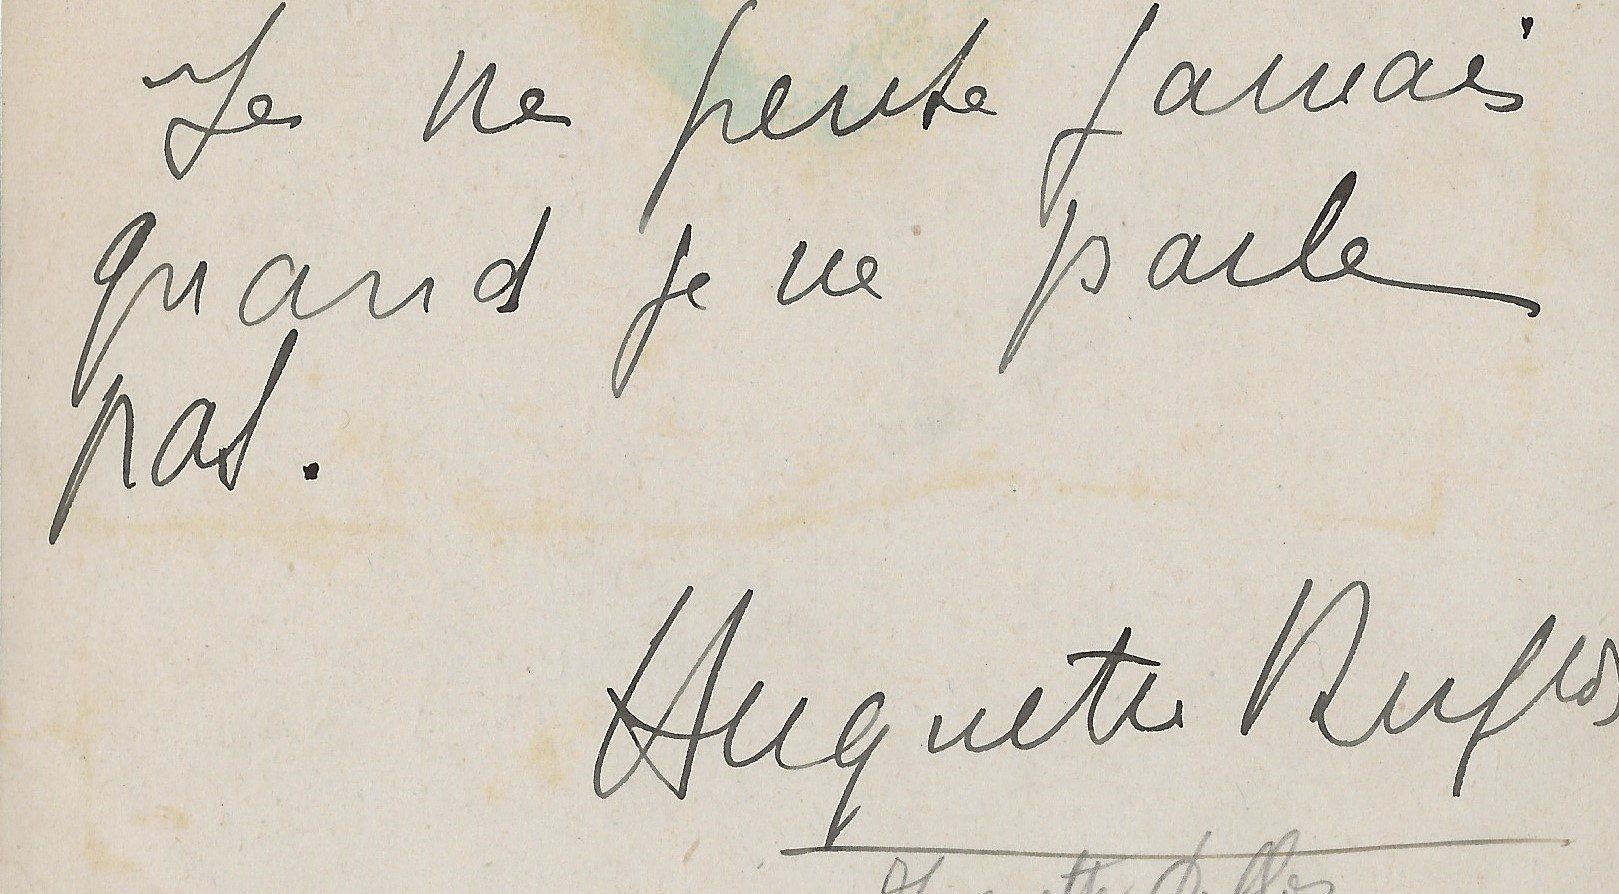 Je ne pense jamais
quand je ne parle
pas.
Huguette Duflos